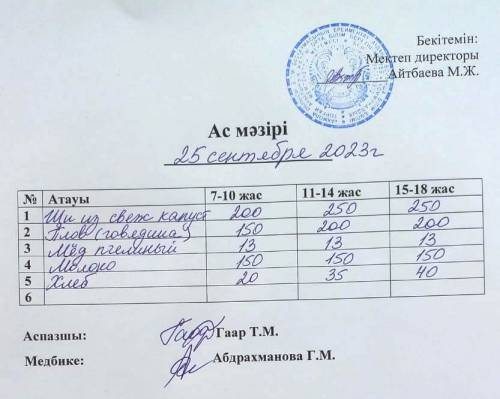 Бекітемін:
Мектеп директоры
Айтбаева М.Ж.
Ас мәзірі
25 сентября 2023г
№ Атауы 7-10 жас 11-14 жас 15-18 жас
1 Щи из свеж капуст 200 250 250
2 Плов (говядина) 150 200 200
3 Мёд пчелиный 13 13 13
4 Молоко 150 150 150
5 Хлеб 20 35 40
6
Аспазшы: Гаар Т.М.
Медбике: Абдрахманова Г.М.